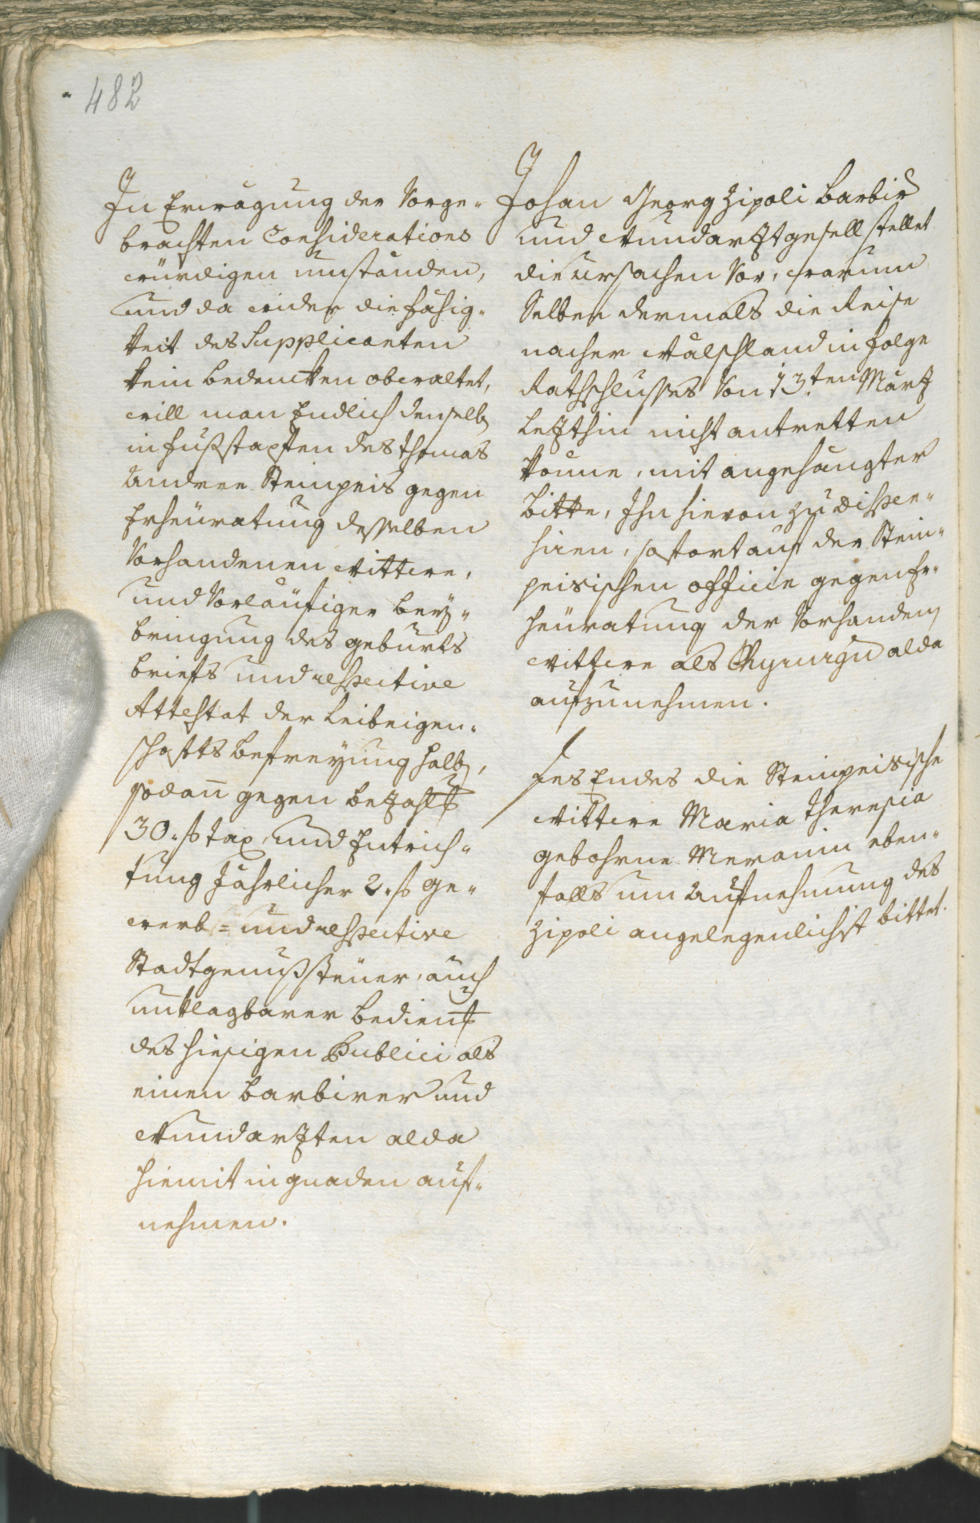 482
In Erwägung der Vorge-
brachten Considerations
würdigen umständen,
und da wider die fähig-
keit des Supplicanten
kein bedencken oberaltet,
will man Endlich denselb
in fußstapfen des Thomas
Andree Steinpeis gegen
Erheüratung desselben
Vorhandenen Wittwe,
und Vorläufiger beÿ-
bringung des geburts
briefs und respective
Attestat der Leibeigen-
schafts befreÿung halb,
sodan gegen bezahlt
30. f tax, und Entrich-
tung Jährlicher 2. f ge-
werb- und respective
Stadtgenußsteüer, auch
unklagbarer bedienu
des hiesigen Publici als
einen barbirer und
Wundarzten alda
hiemit in gnaden auf-
nehmen.
Johan Georg Zipoli barbir
und Wundarzt gesell stellet
die ursachen Vor, warum
Selber dermals die Reise
nacher Wälschland in folge
Rathschlusses Von 13.ten Märtz
Letzthin nicht antretten
könne, mit angehängter
bitte, Ihn hievon zu dispen-
siren, sofort auf der Stein-
peisischen officin gegen Er-
heüratung der Vorhanden
Wittwe als Chyrurgu alda
aufzunehmen.
Jes Endes die Steinpeisische
Wittwe Maria Theresia
gebohrne Meranin eben-
falls um aufnehmung des
Zipoli angelegenlichst bittet.